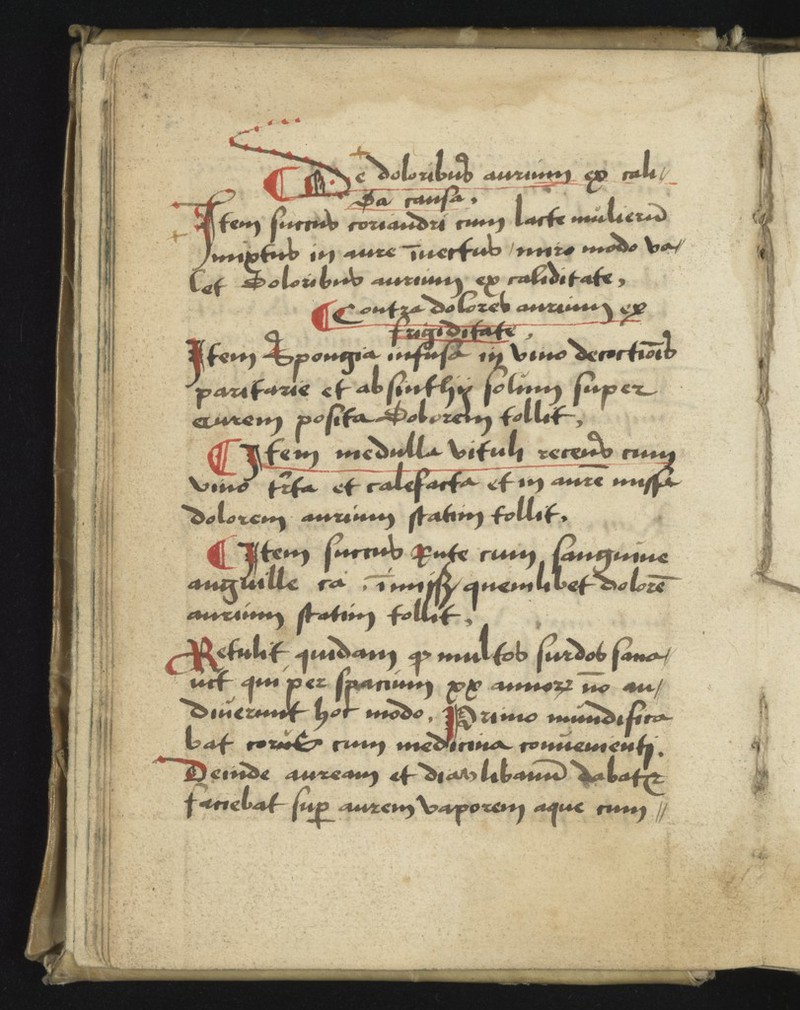 De doloribus aurium ex cali//
da causa.
Item succus coriandri cum lacte mulierū
mixtus in aure īiectus miro modo va//
let Doloribus aurium ex caliditate,
Contra dolores aurium ex
frigiditate,
Item Spongia infusa in vino decoctiōis
paritarie et absinthii solum super
aurem posita Dolorem tollit,
Item medulla vituli recens cum
vino trita et calefacta et in aurē missa
dolorem aurium statim tollit,
Item succus Rute cum sanguine
anguille quemlibet dolorē
aurium statim tollit,
Retulit quidam qͥ multos surdos sana//
uit qui per spacium xx annorꝝ nō au//
diuerunt hoc modo. Primo mundifica
bat cum medicina conuenienti.
Deinde auream et libanum dabat
faciebat suꝑ aurem vaporem aque cum //